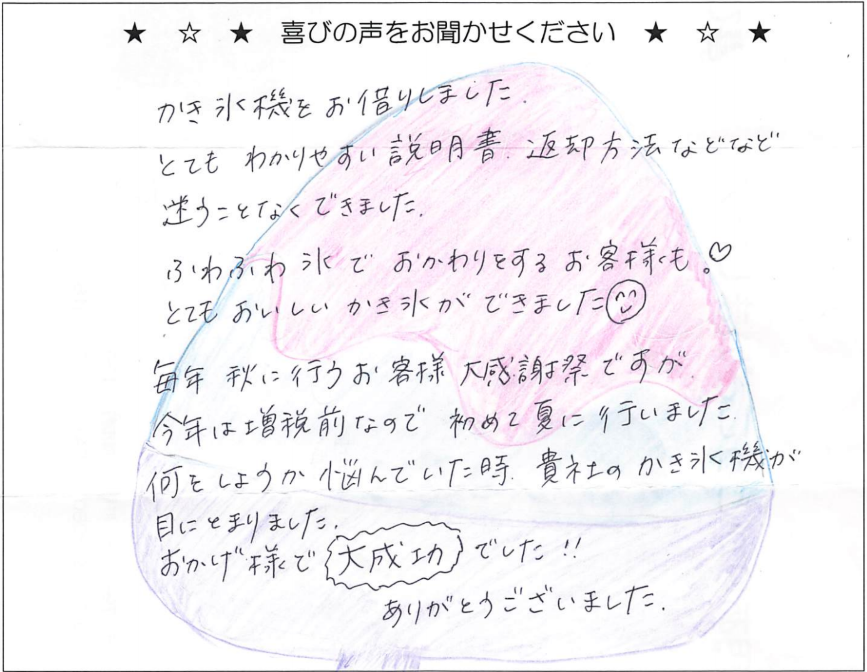 ★ ☆ ★ 喜びの声をお聞かせください ★ ☆ ★
かき氷機をお借りしました.
とても わかりやすい説明書.返却方法などなど
迷うことなくできました.
ふわふわ氷で おかわりをする お客様も。♡
とてもおいしい かき氷が できました
毎年 秋に行うお客様 大感謝祭ですが.
今年は増税前なので 初めて夏に行いました.
何をしようか 悩んでいた時.貴社の かき氷機が
目にとまりました.
おかげ様で 大成功 でした!!
ありがとうございました.